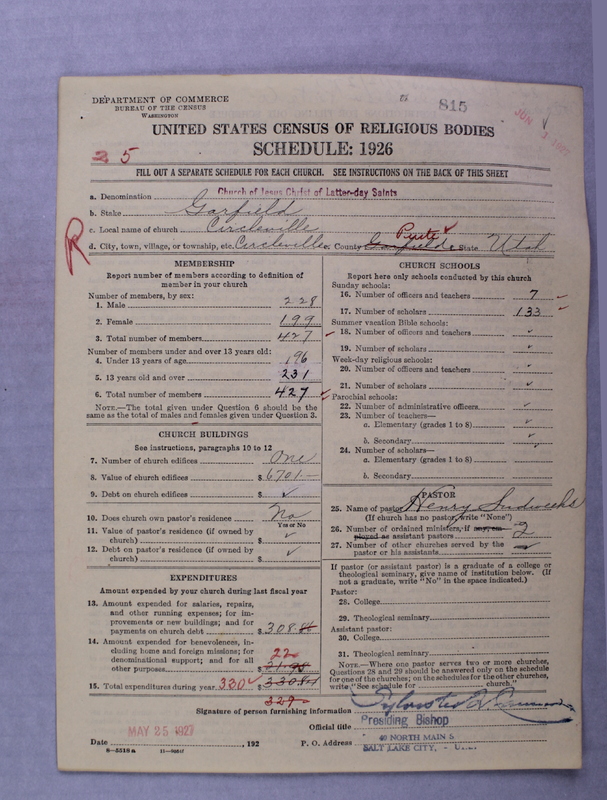 DEPARTMENT OF COMMERCE
BUREAU OF THE CENSUS
WASHINGTON
815
UNITED STATES CENSUS OF RELIGIOUS BODIES
25
SCHEDULE: 1926
FILL OUT A SEPARATE SCHEDULE FOR EACH CHURCH. SEE INSTRUCTIONS ON THE BACK OF THIS SHEET
a. Denomination Church of Jesus Christ of Latter-day Saints
b. Stake Garfield
c. Local name of church Circleville
Piute
R
d. City, town, village, or township, etc. Circleville; County Garfield; State Utah
MEMBERSHIP
Report number of members according to definition of
member in your church
Number of members, by sex:
1. Male 228
2. Female 199
3. Total number of members 427
Number of members under and over 13 years old:
4. Under 13 years of age 196
5. 13 years old and over 231
6. Total number of members 427
NOTE.—The total given under Question 6 should be the
same as the total of males and females given under Question 3.
CHURCH BUILDINGS
See instructions, paragraphs 10 to 12
7. Number of church edifices One
8. Value of church edifices $ 6701
9. Debt on church edifices $ ✓
10. Does church own pastor's residence No
Yes or No
11. Value of pastor's residence (if owned by
church) $ ✓
12. Debt on pastor's residence (if owned by
church) $ ✓
EXPENDITURES
Amount expended by your church during last fiscal year
13. Amount expended for salaries, repairs,
and other running expenses; for im-
provements or new buildings; and for
payments on church debt $ 308.86
14. Amount expended for benevolences, in-
cluding home and foreign missions; for
denominational support; and for all
22
other purposes $ 21.98
15. Total expenditures during year 330 ✓ $ 330.84
329
CHURCH SCHOOLS
Report here only schools conducted by this church
Sunday schools:
16. Number of officers and teachers 7
17. Number of scholars 133
Summer vacation Bible schools:
18. Number of officers and teachers ✓
19. Number of scholars ✓
Week-day religious schools:
20. Number of officers and teachers ✓
21. Number of scholars ✓
Parochial schools:
22. Number of administrative officers ✓
23. Number of teachers—
a. Elementary (grades 1 to 8) ✓
b. Secondary ✓
24. Number of scholars—
a. Elementary (grades 1 to 8) ✓
b. Secondary
PASTOR
25. Name of pastor Henry Sudweeks
(If church has no pastor, write "None")
26. Number of ordained ministers, if any, em-
ployed as assistant pastors 2
27. Number of other churches served by the
pastor or his assistants
If pastor (or assistant pastor) is a graduate of a college or
theological seminary, give name of institution below. (If
not a graduate, write "No" in the space indicated.)
Pastor:
28. College
29. Theological seminary
Assistant pastor:
30. College
31. Theological seminary
NOTE.—Where one pastor serves two or more churches,
Questions 28 and 29 should be answered only on the schedule
for one of the churches; on the schedules for the other churches,
write "See schedule for church."
Signature of person furnishing information Sylvester Q. Cannon
Official title Presiding Bishop
MAY 25 1927
Date , 192
P. O. Address 40 NORTH MAIN S
SALT LAKE CITY,
6—5518a